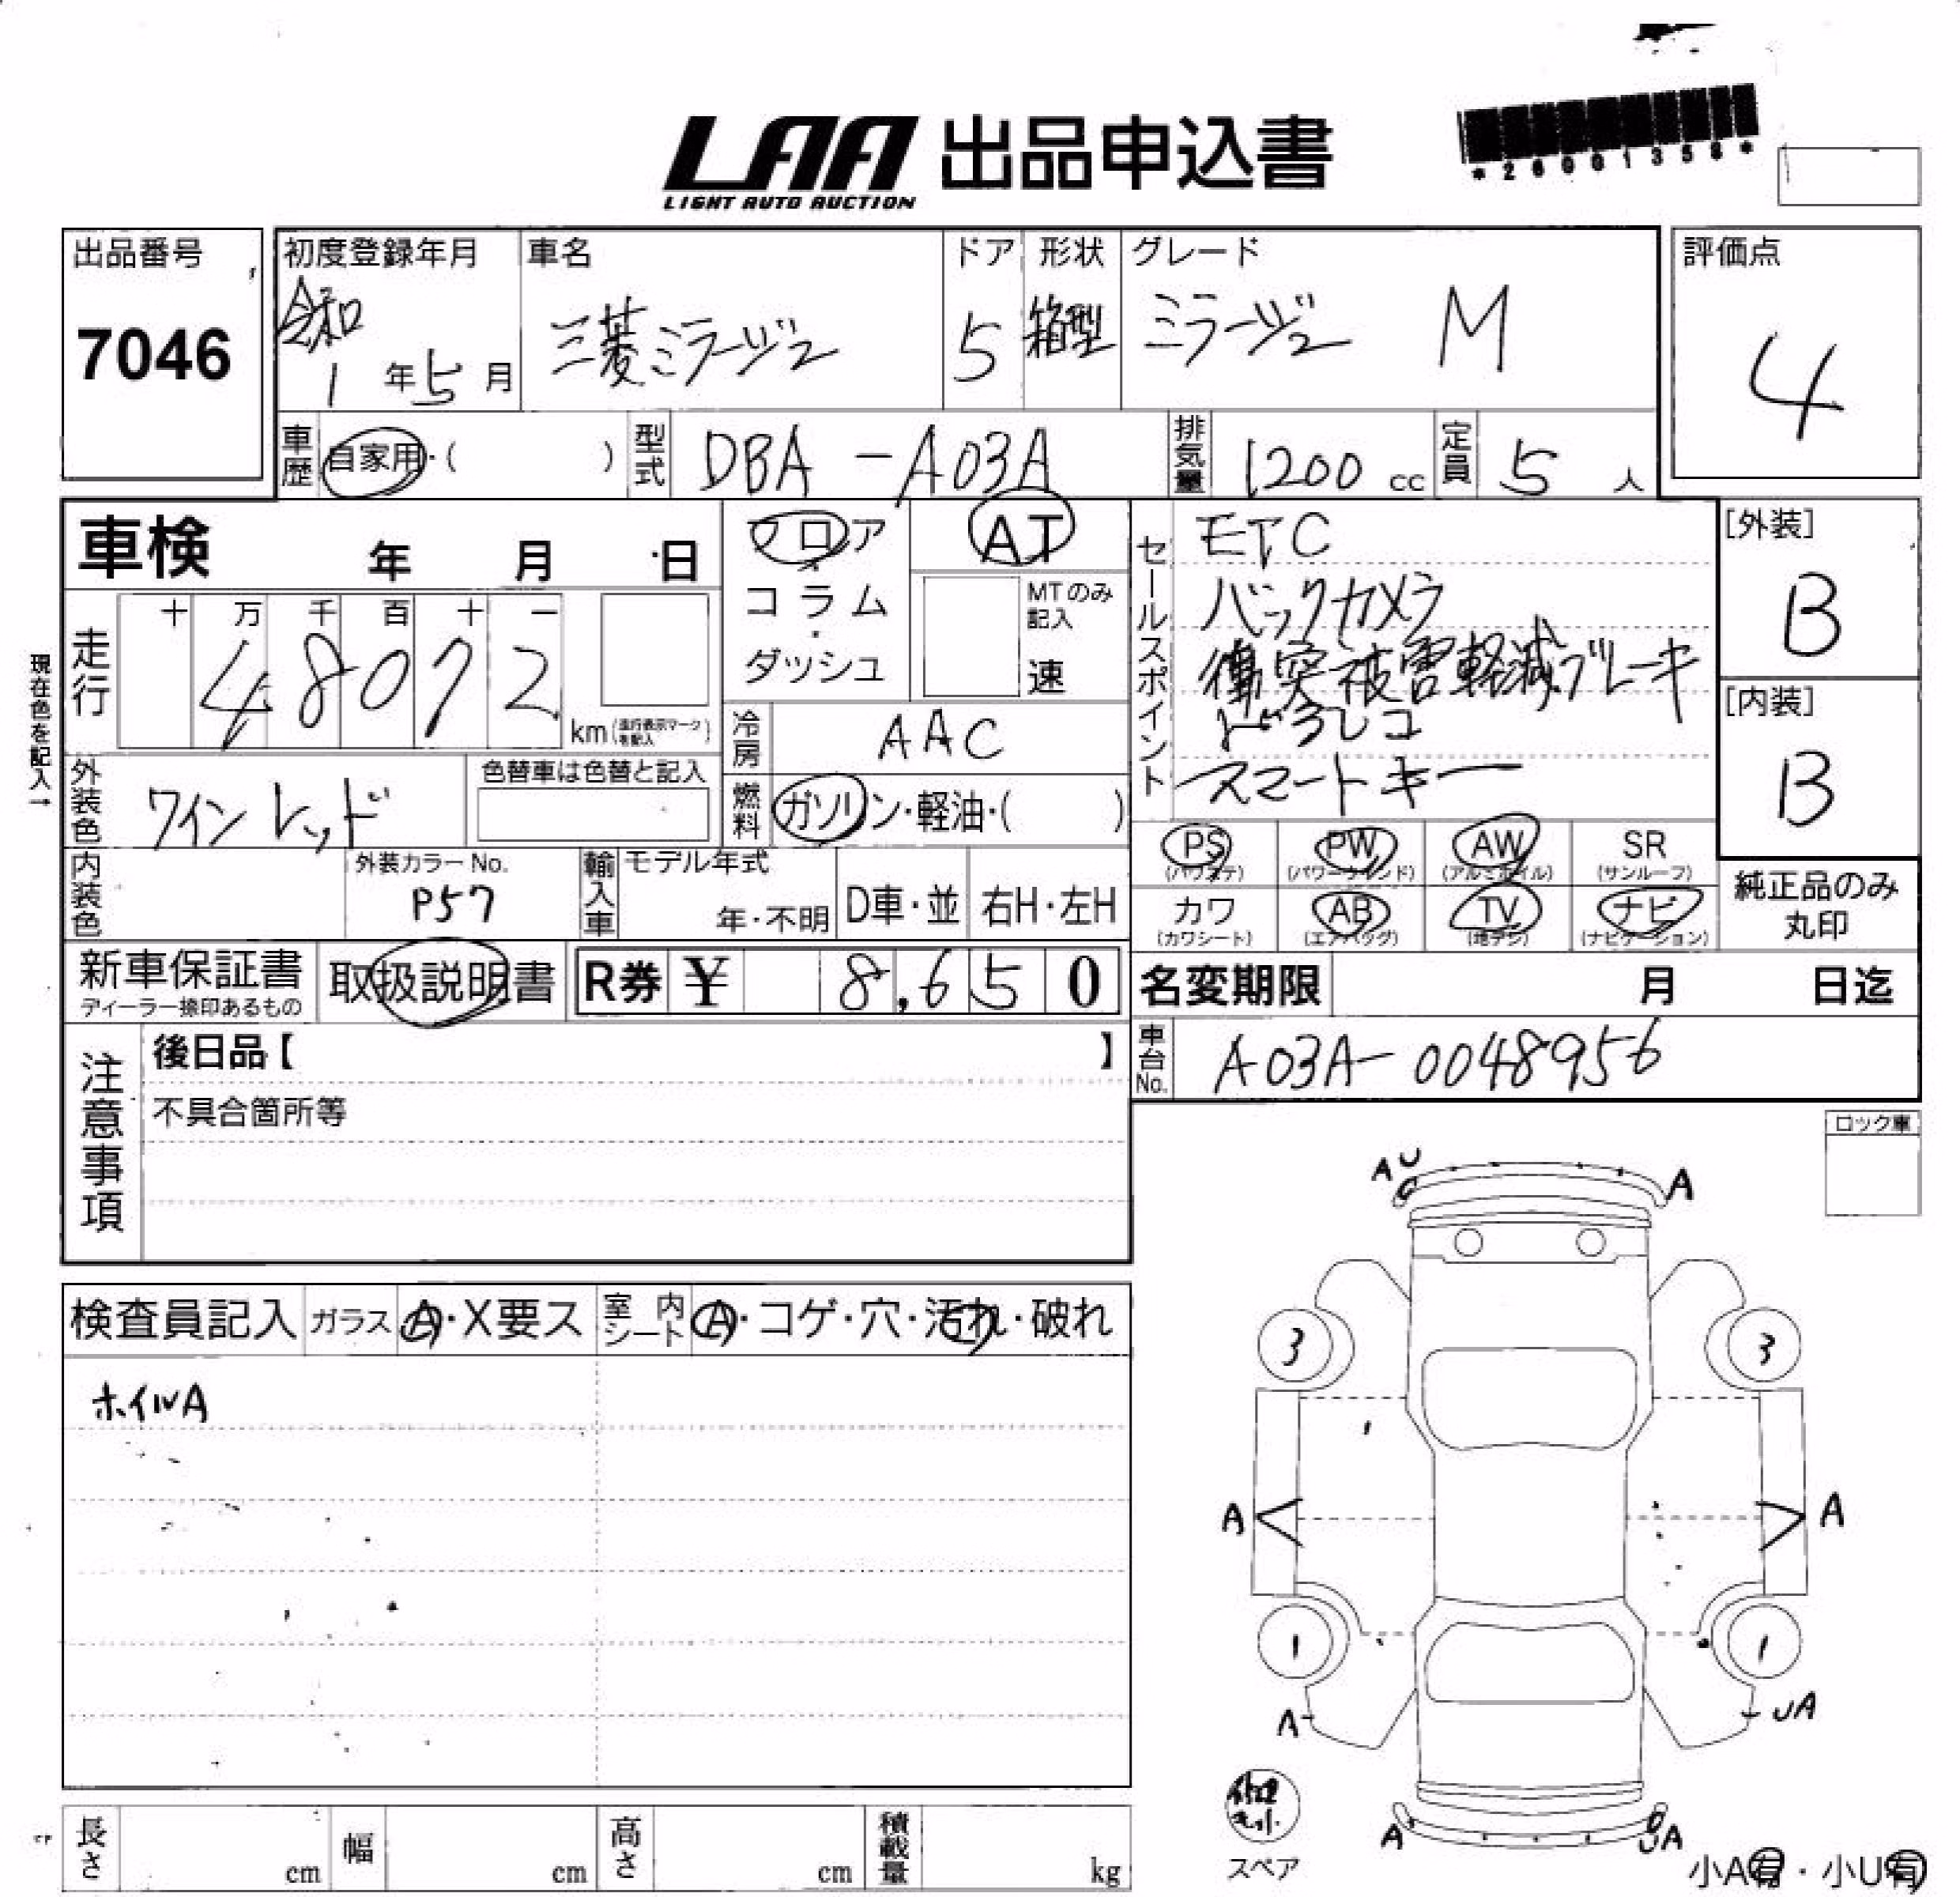 LAA 出品申込書
LIGHT AUTO AUCTION
出品番号
7046
初度登録年月
令和
1 年 5 月
車名
三菱ミラージュ
ドア
5
形状
箱型
グレード
ミラージュ M
評価点
4
車歴
自家用・( )
型式
DBA-A03A
排気量
1200 cc
定員
5 人
車検 年 月 日
現在色を記入→
走行
十 万 千 百 十 一
48072
km(走行表示マークを記入)
フロア
・
コラム
・
ダッシュ
AT
MTのみ
記入
速
冷房
AAC
燃料
ガソリン・軽油・( )
外装色
ワインレッド
色替車は色替と記入
内装色
外装カラーNo.
P57
輸入車
モデル年式
年・不明
D車・並
右H・左H
セールスポイント
ETC
バックカメラ
衝突被害軽減ブレーキ
ドラレコ
スマートキー
[外装]
B
[内装]
B
PS
(パワステ)
PW
(パワーウインド)
AW
(アルミホイル)
SR
(サンルーフ)
カワ
(カワシート)
AB
(エアバッグ)
TV
(地デジ)
ナビ
(ナビゲーション)
純正品のみ
丸印
新車保証書
ディーラー捺印あるもの
取扱説明書
R券 ¥ 8,650
名変期限 月 日迄
車台No.
A03A-0048956
注意事項
後日品【 】
不具合箇所等
ロック車
検査員記入
ガラス
A・X要ス
室内シート
A・コゲ・穴・汚れ・破れ
ホイルA
A U
A
3
3
A
A
1
1
A
UA
A
UA
スペア
小A有・小U有
長さ
cm
幅
cm
高さ
cm
積載量
kg